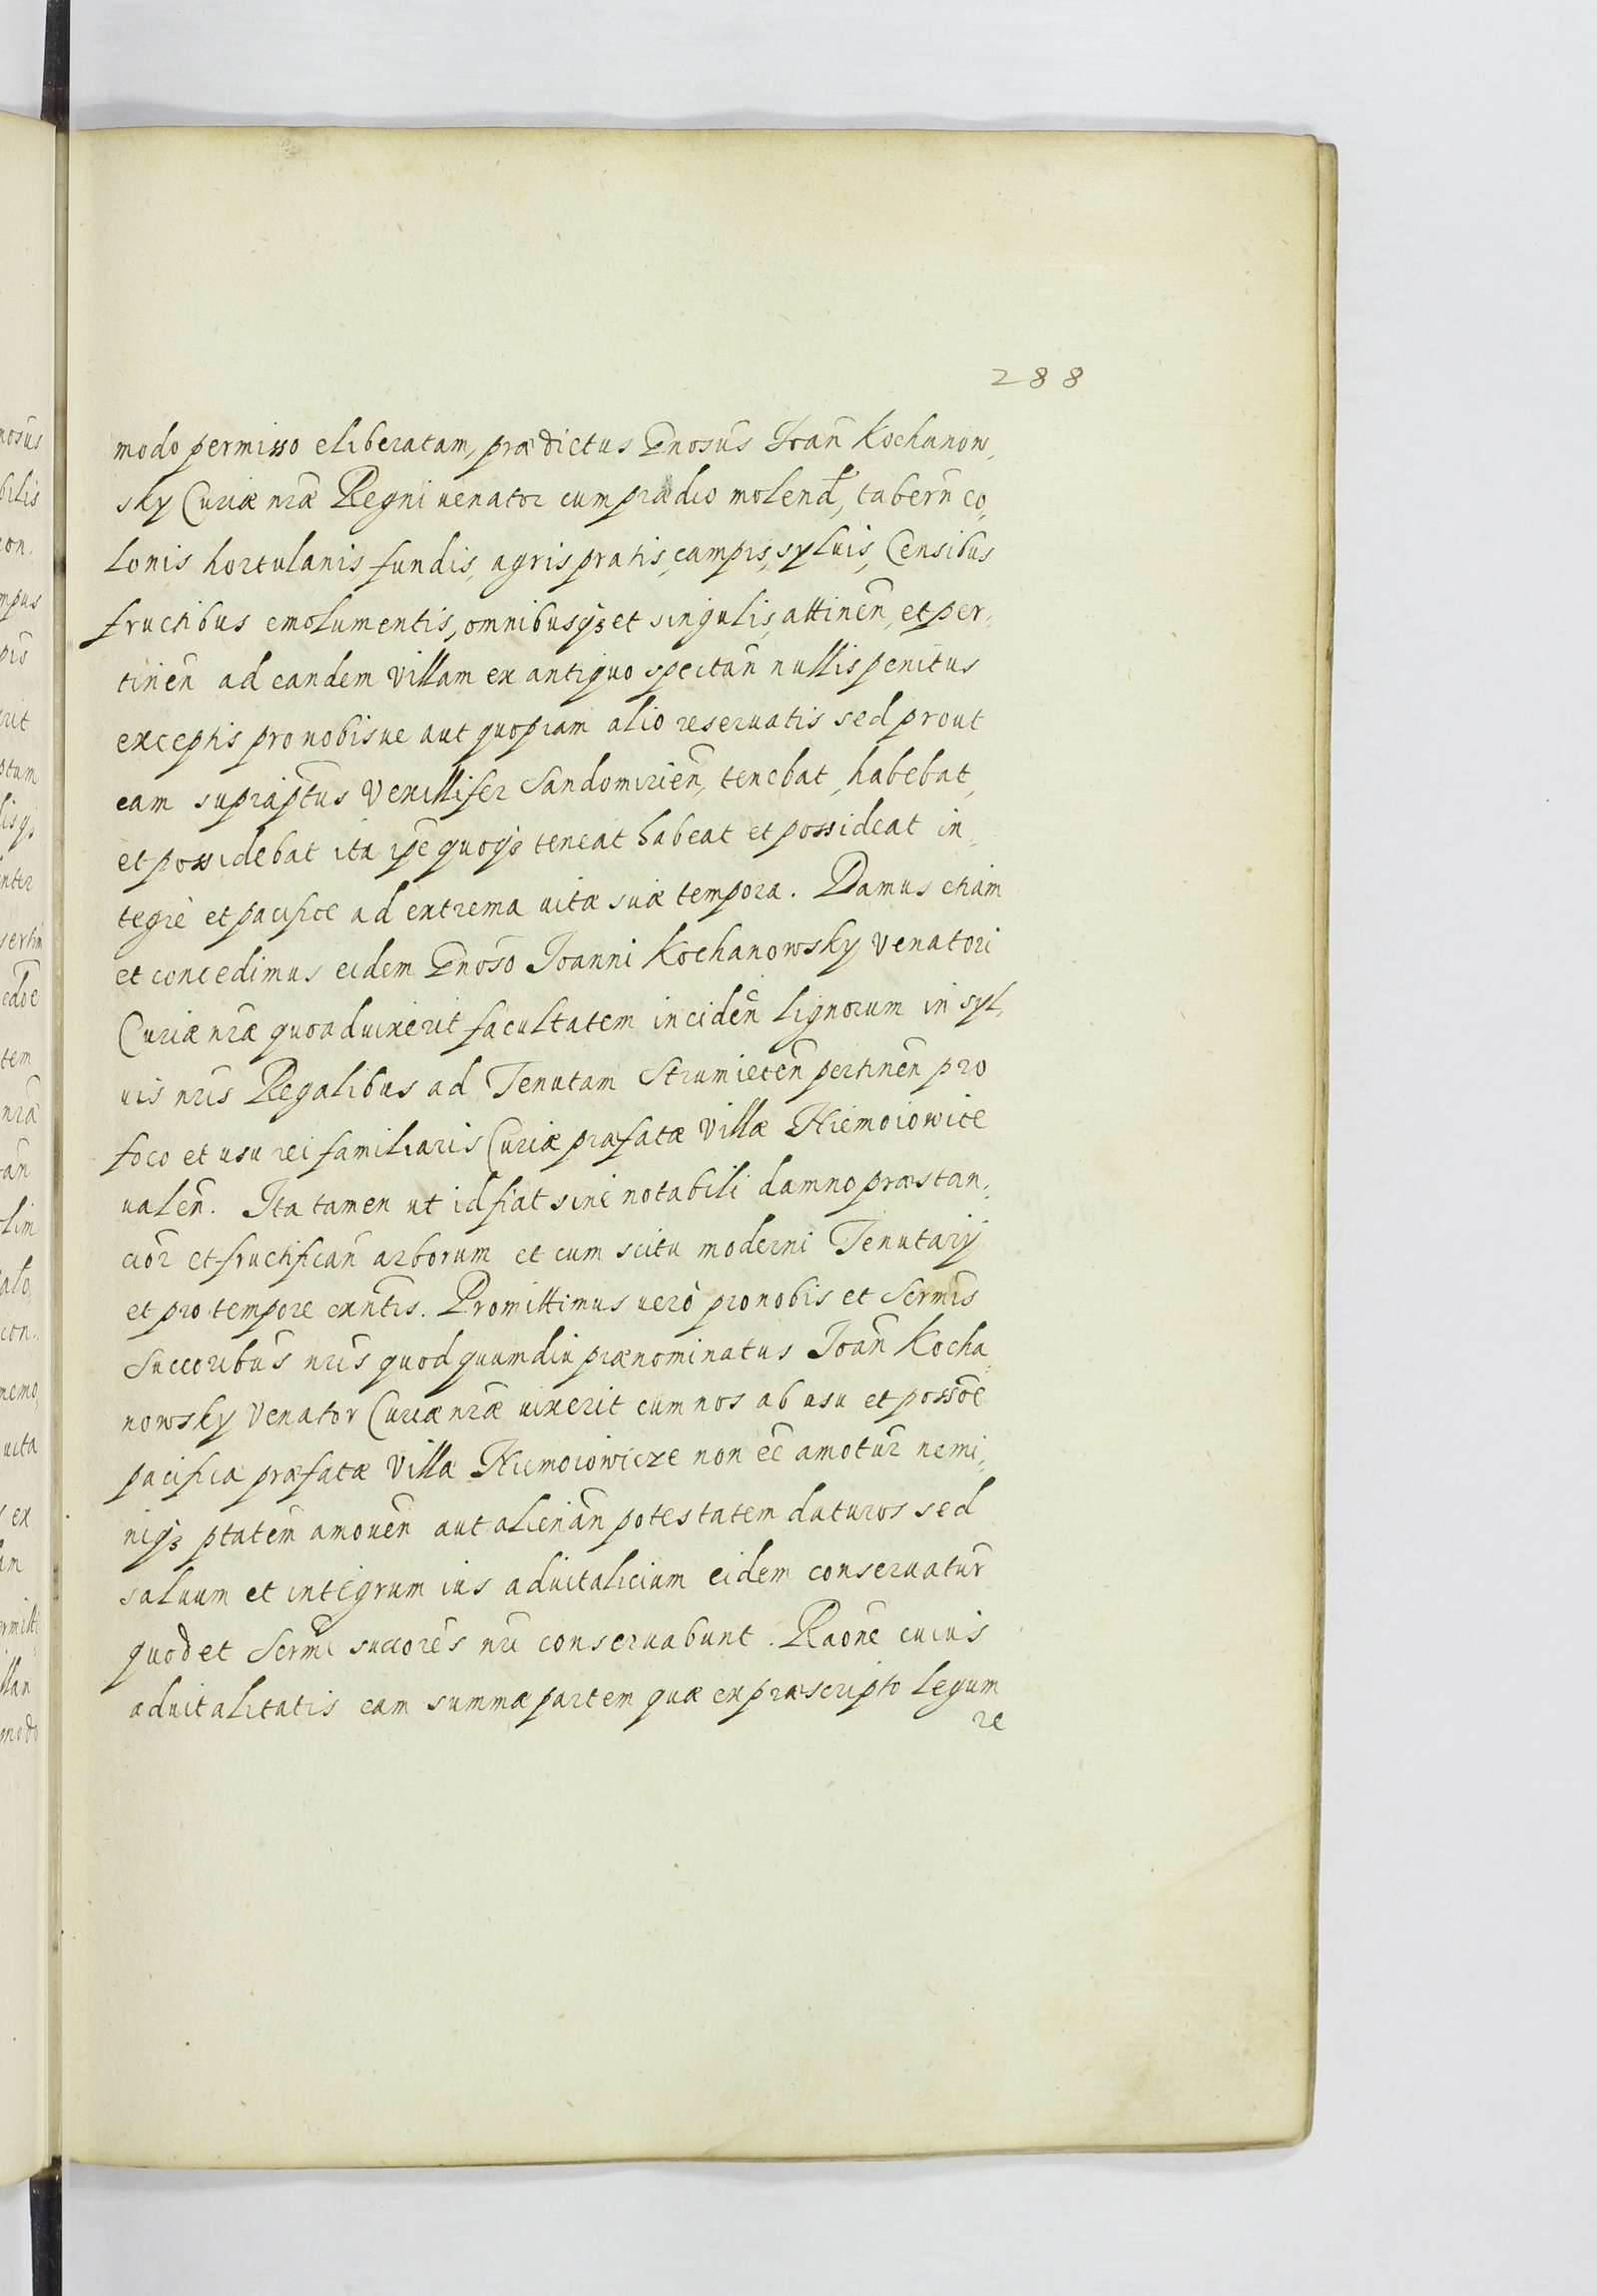 288
modo permisso eliberatam, prædictus Gnosūs Joan̄ Kochanow,
sky Curiæ nr̄æ Regni uenator cum prædio molend̄, tabern̄ co,
lonis hortulanis fundis, agris pratis, campis, syluis, Censibus
fructibus emolumentis, omnibusqȝ et singulis, attinen̄, et per,
tinen̄ ad eandem Villam ex antiquo spectan̄ nullis penitus
exceptis pro nobisue aut quopiam alio reseruatis sed prout
eam suprap̄tus Vexillifer Sandomirien̄, tenebat, habebat,
et possidebat ita ip̄e quoqȝ teneat habeat et possideat in,
tegrè et pacifice ad extrema uitæ suæ tempora. Damus etiam
et concedimus eidem Gnoso̅ Joanni Kochanowsky Venatori
Curiæ nr̄æ quoad uixerit facultatem inciden̄ lignorum in syl,
uis nr̄is Regalibus ad Tenutam Strumiecen̄ pertinen̄ pro
foco et usu rei familiaris Curiæ præfatæ Villæ Niemoiowice
ualen̄. Ita tamen ut id fiat sine notabili damno præstan,
cior̄ et fructifican̄ arborum et cum scitu moderni Tenutarij
et pro tempore exn̄tis. Promittimus uerò pro nobis et Serm̄is
Succoribūs nr̄is quod quumdiu prænominatus Joan̄ Kocha,
nowsky Venator Curiæ nr̄æ uixerit eum nos ab usu et posso̅e
pacifica præfatæ Villæ Niemoiowicze non ee̅ amotur̄ nemi,
niqȝ ptatem̄ amouen̄ aut alienan̄ potestatem daturos sed
saluum et integrum ius aduitalicium eidem conseruatur̄
quod et Serm̄i succores̄ nr̄i conseruabunt. Rao̅ne cuius
aduitalitatis eam summæ partem quæ ex præscripto legum
re